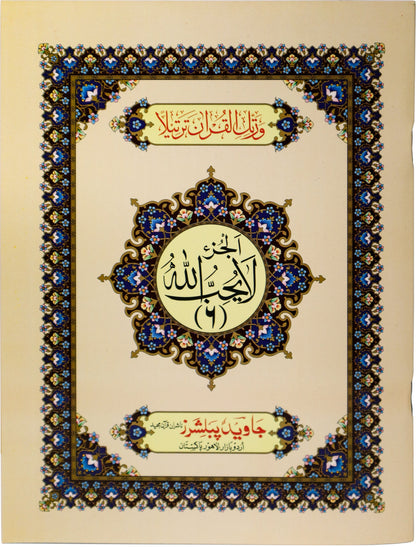 ورتل القرآن ترتيلا
الجزء
لا يحب الله
(٦)
جاوید پبلشرز ناشران قرآن مجید
اردو بازار لاہور پاکستان